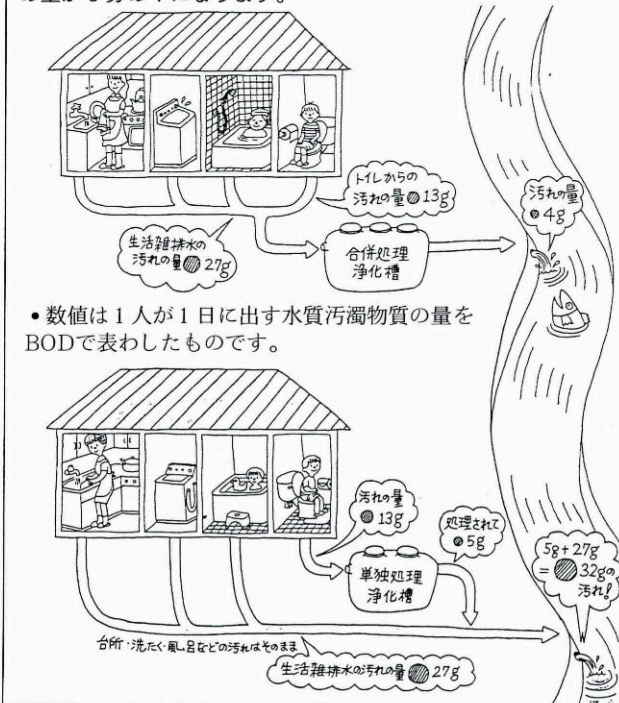 トイレからの
汚れの量 13g
汚れの量
4g
生活雑排水の
汚れの量 27g
合併処理
浄化槽
•数値は1人が1日に出す水質汚濁物質の量を
BODで表わしたものです。
汚れの量
13g
処理されて
5g
単独処理
浄化槽
5g+27g
= 32gの
汚れ!
台所・洗たく・風呂などの汚れはそのまま
生活雑排水の汚れの量 27g